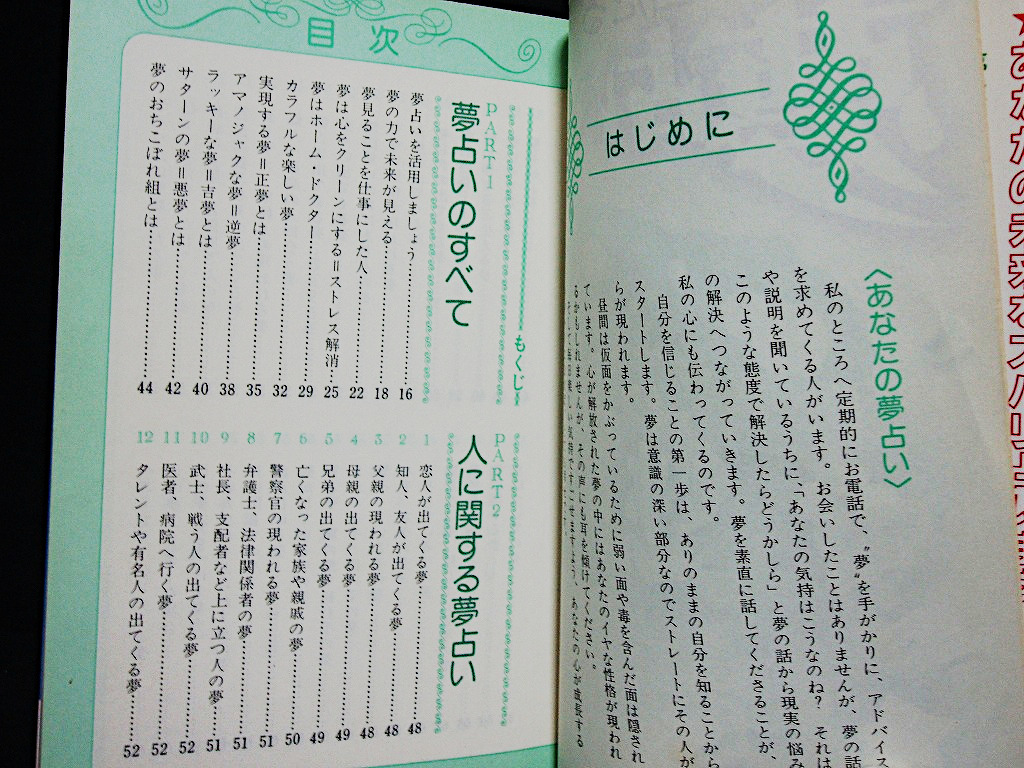 はじめに
〈あなたの夢占い〉
私のところへ定期的にお電話で、〝夢〟を手がかりに、アドバイス
を求めてくる人がいます。お会いしたことはありませんが、夢の話
や説明を聞いているうちに、「あなたの気持はこうなのね? それは
このような態度で解決したらどうかしら」と夢の話から現実の悩み
の解決へつながっていきます。夢を素直に話してくださることが、
私の心にも伝わってくるのです。
自分を信じることの第一歩は、ありのままの自分を知ることから
スタートします。夢は意識の深い部分なのでストレートにその人が
らが現われます。
昼間は仮面をかぶっているために弱い面や毒を含んだ面は隠され
ています。心が解放された夢の中にはあなたのイヤな性格が現われ
るかもしれませんが、その声にも耳を傾けてください。
目次
もくじ
PART1
夢占いのすべて
夢占いを活用しましょう……16
夢の力で未来が見える……18
夢見ることを仕事にした人……22
夢は心をクリーンにする=ストレス解消……25
夢はホーム・ドクター……29
カラフルな楽しい夢……32
実現する夢=正夢とは……35
アマノジャクな夢=逆夢……38
ラッキーな夢=吉夢とは……40
サターンの夢=悪夢とは……42
夢のおちこぼれ組とは……44
PART2
人に関する夢占い
1 恋人が出てくる夢……48
2 知人、友人が出てくる夢……48
3 父親の現われる夢……48
4 母親の出てくる夢……49
5 兄弟の出てくる夢……49
6 亡くなった家族や親戚の夢……50
7 警察官の現われる夢……51
8 弁護士、法律関係者の夢……51
9 社長、支配者など上に立つ人の夢……51
10 武士、戦う人の出てくる夢……52
11 医者、病院へ行く夢……52
12 タレントや有名人の出てくる夢……52